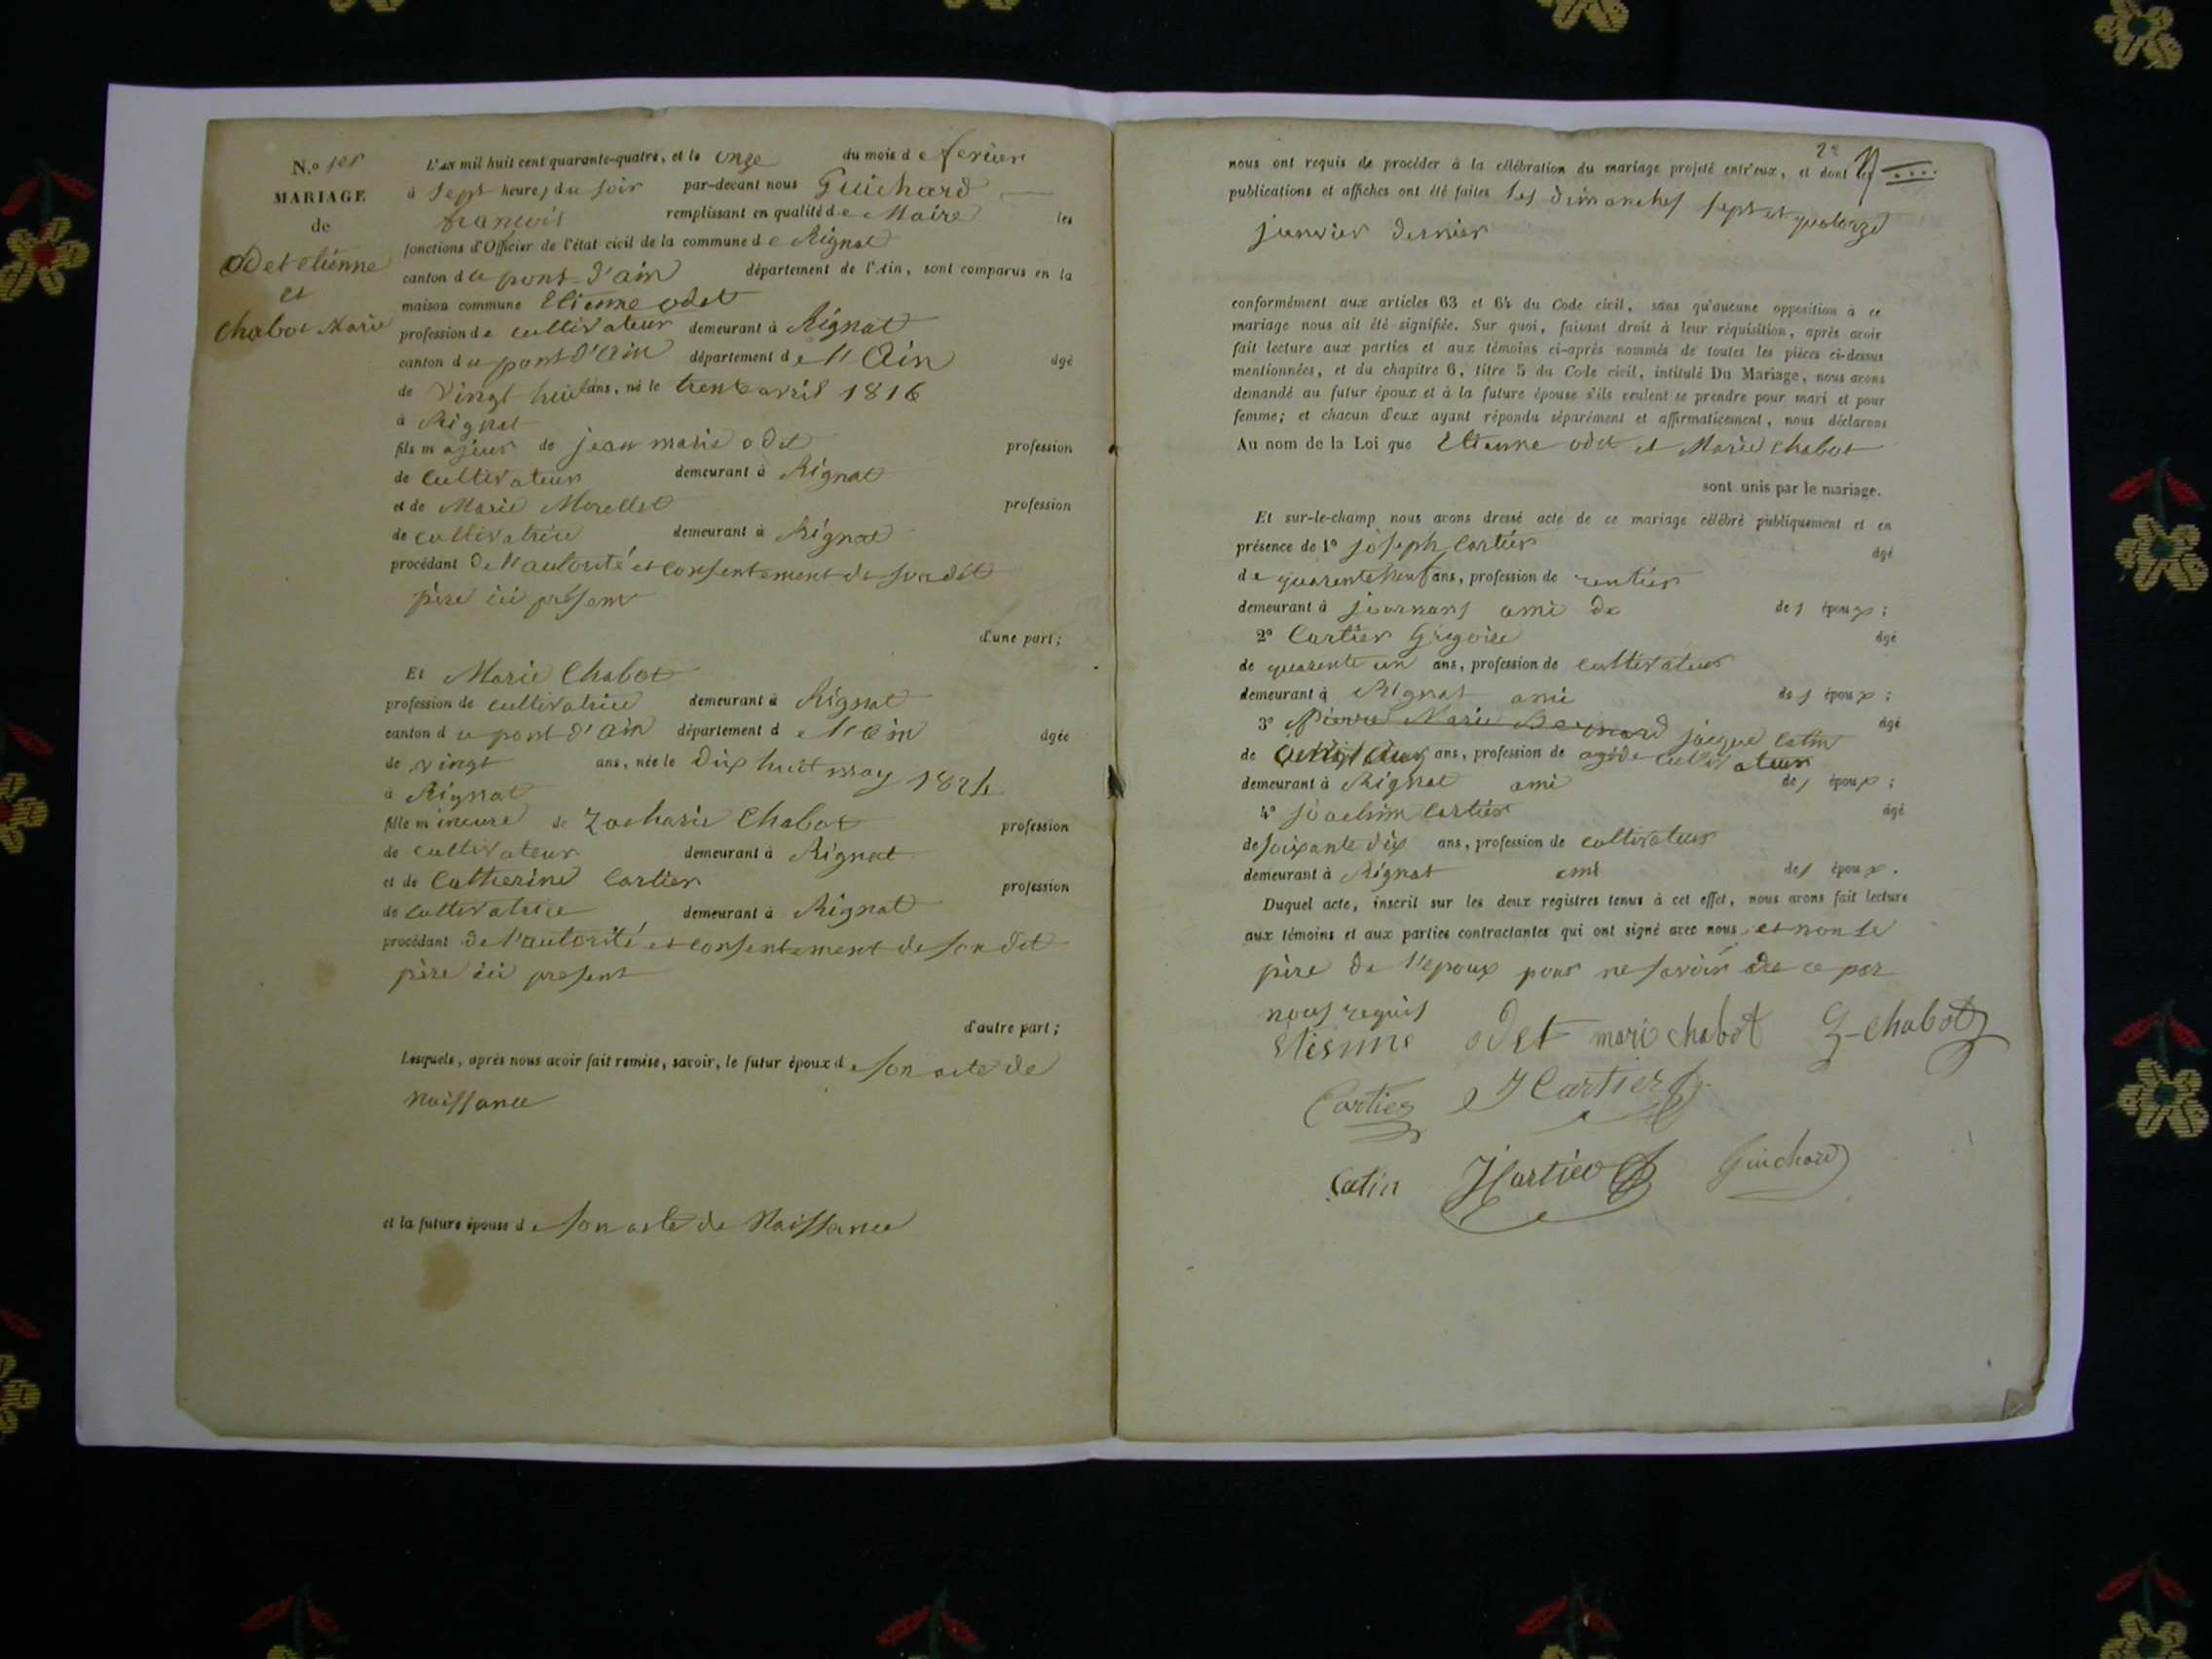 N.o 1er
MARIAGE
de
odet etienne
et
chabot Marie
L'an mil huit cent quarante-quatre, et le onze du mois de fevrier
à sept heures du soir par-devant nous Guichard
francois remplissant en qualité de Maire les
fonctions d'Officier de l'état civil de la commune de Rignat
canton du pont d'ain département de l'Ain, sont comparus en la
maison commune Etienne odet
profession de cultivateur demeurant à Rignat
canton du pont d'ain département de l'Ain âgé
de vingt huit ans, né le trente avril 1816
à Rignat
fils majeur de jean marie odet profession
de cultivateur demeurant à Rignat
et de Marie Morellet profession
de cultivatrice demeurant à Rignat
procédant de l'autorité et consentement de son dit
père ici présent
d'une part;
Et Marie Chabot
profession de cultivatrice demeurant à Rignat
canton du pont d'ain département de l'ain âgée
de vingt ans, née le dix huit may 1824
à Rignat
fille mineure de Zacharie Chabot profession
de cultivateur demeurant à Rignat
et de Catherine Cartier profession
de cultivatrice demeurant à Rignat
procédant de l'autorité et consentement de son dit
père ici present
d'autre part;
Lesquels, après nous avoir fait remise, savoir, le futur époux de son acte de
naissance
et la future épouse de son acte de Naissance
2
nous ont requis de procéder à la célébration du mariage projeté entr'eux, et dont les
publications et affiches ont été faites les dimanches sept et quatorze
janvier dernier
conformément aux articles 63 et 64 du Code civil, sans qu'aucune opposition à ce
mariage nous ait été signifiée. Sur quoi, faisant droit à leur réquisition, après avoir
fait lecture aux parties et aux témoins ci-après nommés de toutes les pièces ci-dessus
mentionnées, et du chapitre 6, titre 5 du Code civil, intitulé Du Mariage, nous avons
demandé au futur époux et à la future épouse s'ils veulent se prendre pour mari et pour
femme; et chacun d'eux ayant répondu séparément et affirmativement, nous déclarons
Au nom de la Loi que Etienne odet et Marie chabot
sont unis par le mariage.
Et sur-le-champ nous avons dressé acte de ce mariage célébré publiquement et en
présence de 1º joseph Cartier âgé
de quarente neuf ans, profession de rentier
demeurant à journans ami de des époux;
2º Cartier Grégoire âgé
de quarente un ans, profession de cultivateur
demeurant à Rignat ami des époux;
3º Pierre Marie Bernard jacque Catin âgé
de ans, profession de cultivateur
demeurant à Rignat ami des époux;
4º Joachim Cartier âgé
de soixante dix ans, profession de cultivateur
demeurant à Rignat ami des époux.
Duquel acte, inscrit sur les deux registres tenus à cet effet, nous avons fait lecture
aux témoins et aux parties contractantes qui ont signé avec nous et non le
père de l'epoux pour ne savoir de ce par
nous requis
etienne odet mari chabot Z-chabot
Cartier J Cartier
Catin J Cartier Guichard